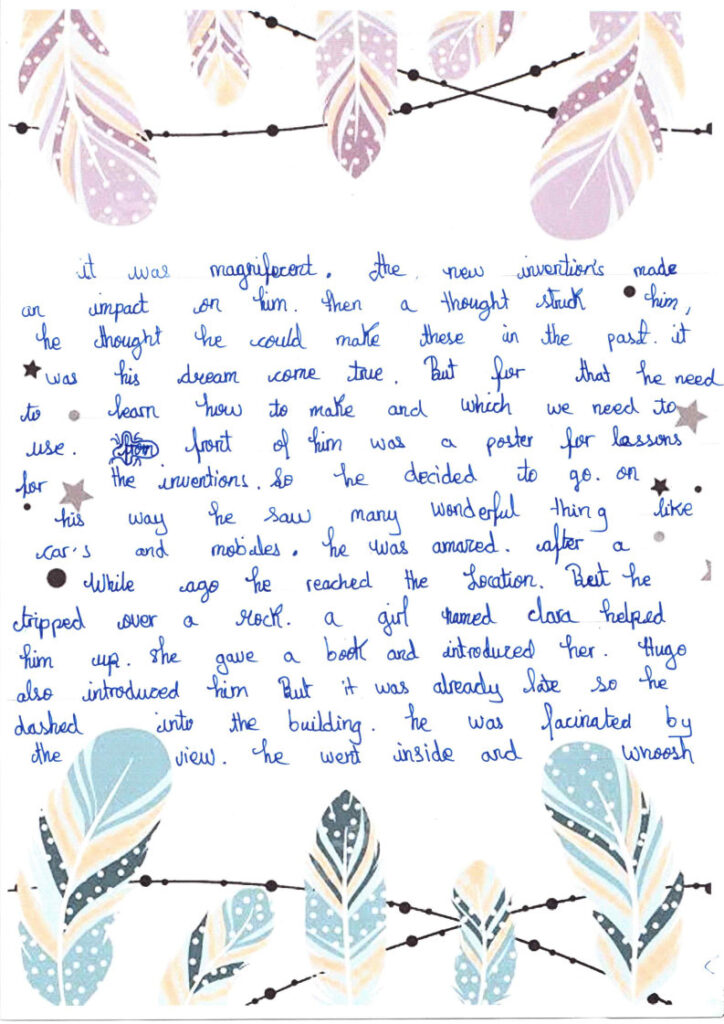 it was magnifecent. the new invention's made
an impact on him. then a thought struck him,
he thought he could make these in the past. it
was his dream come true. But for that he need
to learn how to make and which we need to
use. front of him was a poster for lassons
for the inventions. So he decided to go. on
his way he saw many wonderful thing like
car's and mobiles. he was amazed. after a
While ago he reached the Location. But he
tripped over a rock. a girl named clara helped
him up. She gave a book and introduced her. Hugo
also introduced him But it was already late so he
dashed into the building. he was facinated by
the view. he went inside and whoosh